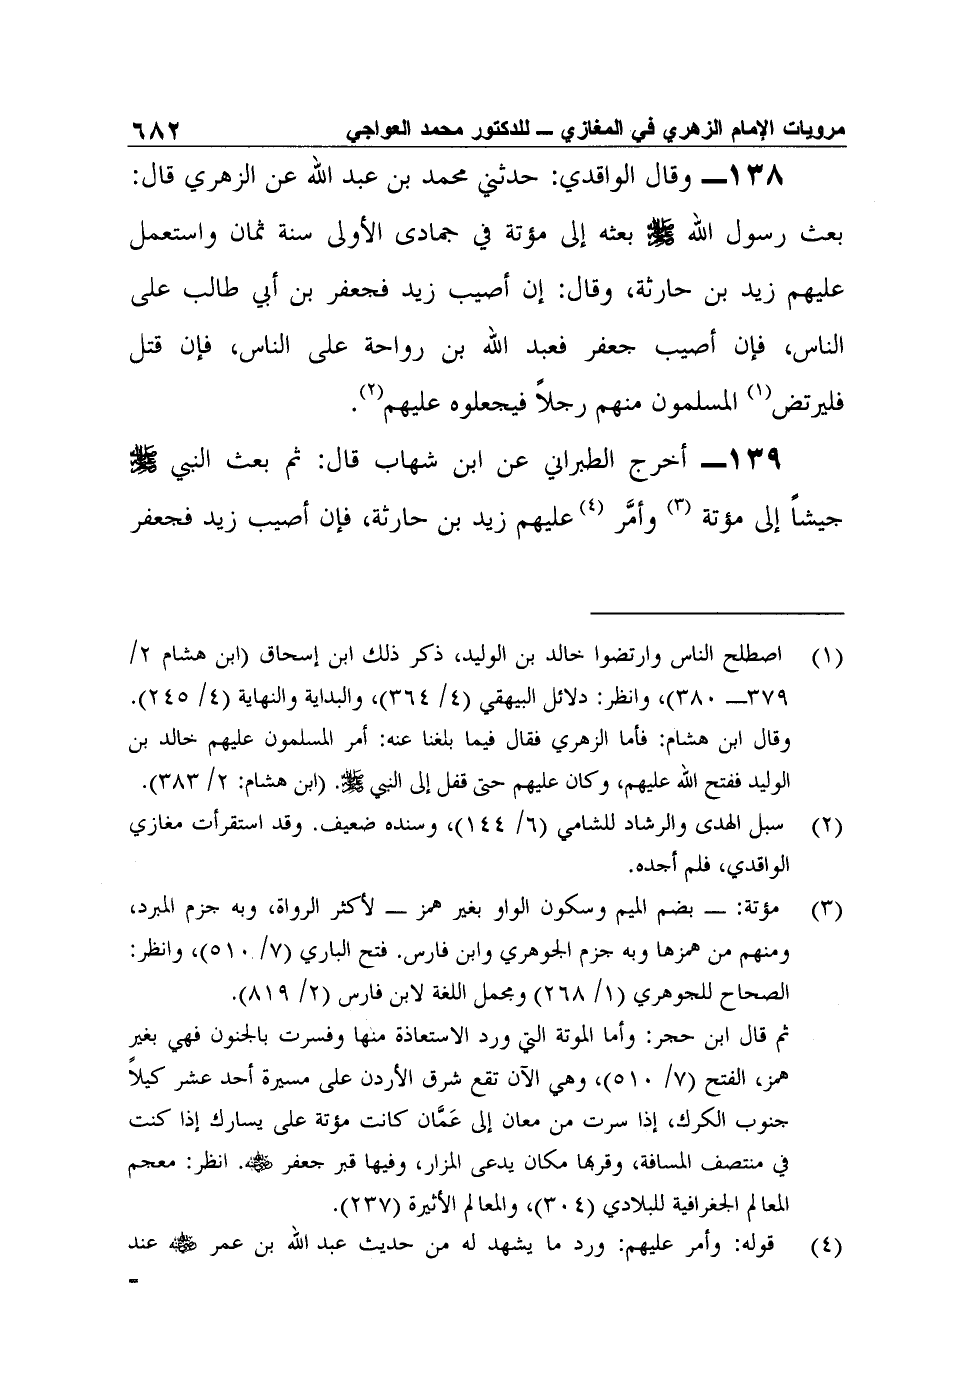 مرويات الإمام الزهري في المغازي ــ للدكتور محمد العواجي ٦٨٢
١٣٨ــ وقال الواقدي: حدثني محمد بن عبد الله عن الزهري قال:
بعث رسول الله ﷺ بعثه إلى مؤتة في جمادى الأولى سنة ثمان واستعمل
عليهم زيد بن حارثة، وقال: إن أصيب زيد فجعفر بن أبي طالب على
الناس، فإن أصيب جعفر فعبد الله بن رواحة على الناس، فإن قتل
فليرتض(١) المسلمون منهم رجلاً فيجعلوه عليهم(٢).
١٣٩ــ أخرج الطبراني عن ابن شهاب قال: ثم بعث النبي ﷺ
جيشاً إلى مؤتة (٣) وأمَّر (٤) عليهم زيد بن حارثة، فإن أصيب زيد فجعفر
(١) اصطلح الناس وارتضوا خالد بن الوليد، ذكر ذلك ابن إسحاق (ابن هشام ٢/
٣٧٩ــ ٣٨٠)، وانظر: دلائل البيهقي (٤/ ٣٦٤)، والبداية والنهاية (٤/ ٢٤٥).
وقال ابن هشام: فأما الزهري فقال فيما بلغنا عنه: أمر المسلمون عليهم خالد بن
الوليد ففتح الله عليهم، وكان عليهم حتى قفل إلى النبي ﷺ. (ابن هشام: ٢/ ٣٨٣).
(٢) سبل الهدى والرشاد للشامي (٦/ ١٤٤)، وسنده ضعيف. وقد استقرأت مغازي
الواقدي، فلم أجده.
(٣) مؤتة: ــ بضم الميم وسكون الواو بغير همز ــ لأكثر الرواة، وبه جزم المبرد،
ومنهم من همزها وبه جزم الجوهري وابن فارس. فتح الباري (٧/ ٥١٠)، وانظر:
الصحاح للجوهري (١/ ٢٦٨) ومجمل اللغة لابن فارس (٢/ ٨١٩).
ثم قال ابن حجر: وأما الموتة التي ورد الاستعاذة منها وفسرت بالجنون فهي بغير
همز، الفتح (٧/ ٥١٠)، وهي الآن تقع شرق الأردن على مسيرة أحد عشر كيلاً
جنوب الكرك، إذا سرت من معان إلى عَمَّان كانت مؤتة على يسارك إذا كنت
في منتصف المسافة، وقربها مكان يدعى المزار، وفيها قبر جعفر ﵁. انظر: معجم
المعالم الجغرافية للبلادي (٣٠٤)، والمعالم الأثيرة (٢٣٧).
(٤) قوله: وأمر عليهم: ورد ما يشهد له من حديث عبد الله بن عمر ﵁ عند
=